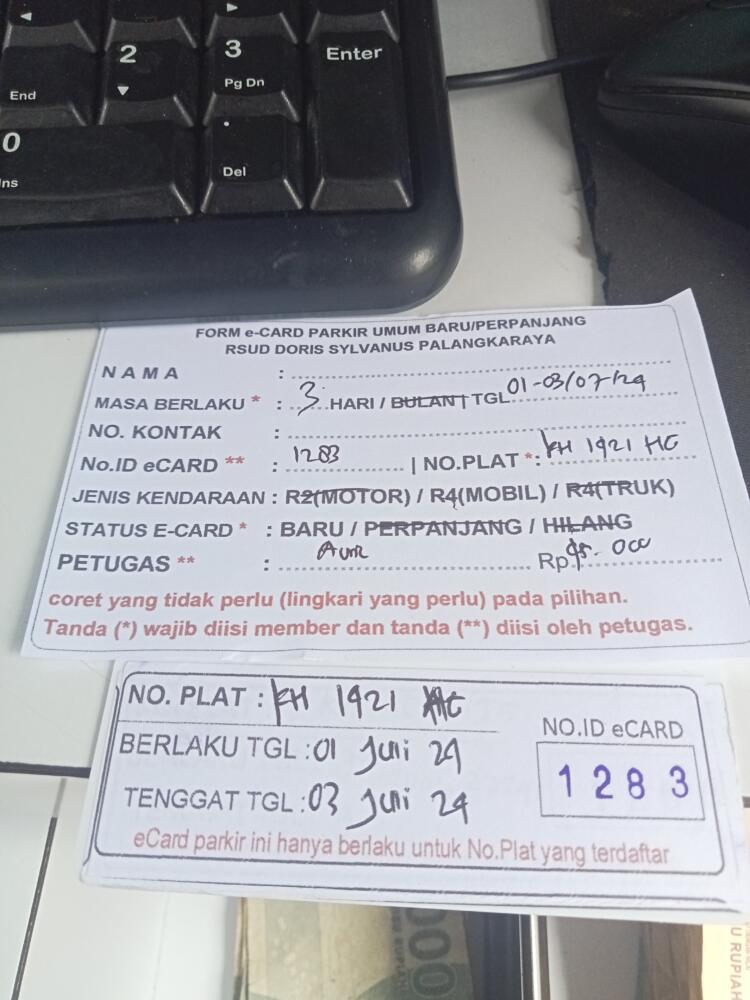 2
3
Enter
End
Pg Dn
0
Ins
Del
FORM e-CARD PARKIR UMUM BARU/PERPANJANG
RSUD DORIS SYLVANUS PALANGKARAYA
NAMA :
MASA BERLAKU * : 3 HARI / BULAN | TGL 01-03/07/24
NO. KONTAK :
No.ID eCARD ** : 1283 | NO.PLAT *: KH 1921 HG
JENIS KENDARAAN : R2(MOTOR) / R4(MOBIL) / R4(TRUK)
STATUS E-CARD * : BARU / PERPANJANG / HILANG
PETUGAS ** : Rp. 000
coret yang tidak perlu (lingkari yang perlu) pada pilihan.
Tanda (*) wajib diisi member dan tanda (**) diisi oleh petugas.
NO. PLAT : KH 1921 HG
BERLAKU TGL : 01 Juli 24
NO.ID eCARD
1283
TENGGAT TGL : 03 Juli 24
eCard parkir ini hanya berlaku untuk No.Plat yang terdaftar
000
U RUPIAH